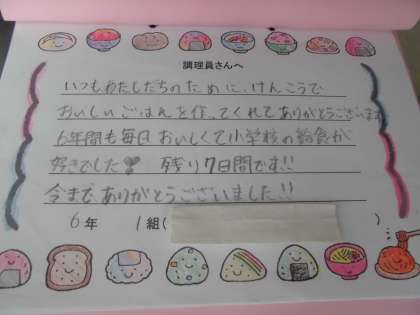 調理員さんへ
いつもわたしたちのために、けんこうで
おいしいごはんを作ってくれてありがとうございます
6年間も毎日おいしくて小学校の給食が
好きでした♥ 残り7日間です!!
今までありがとうございました!!
6年 1組( )